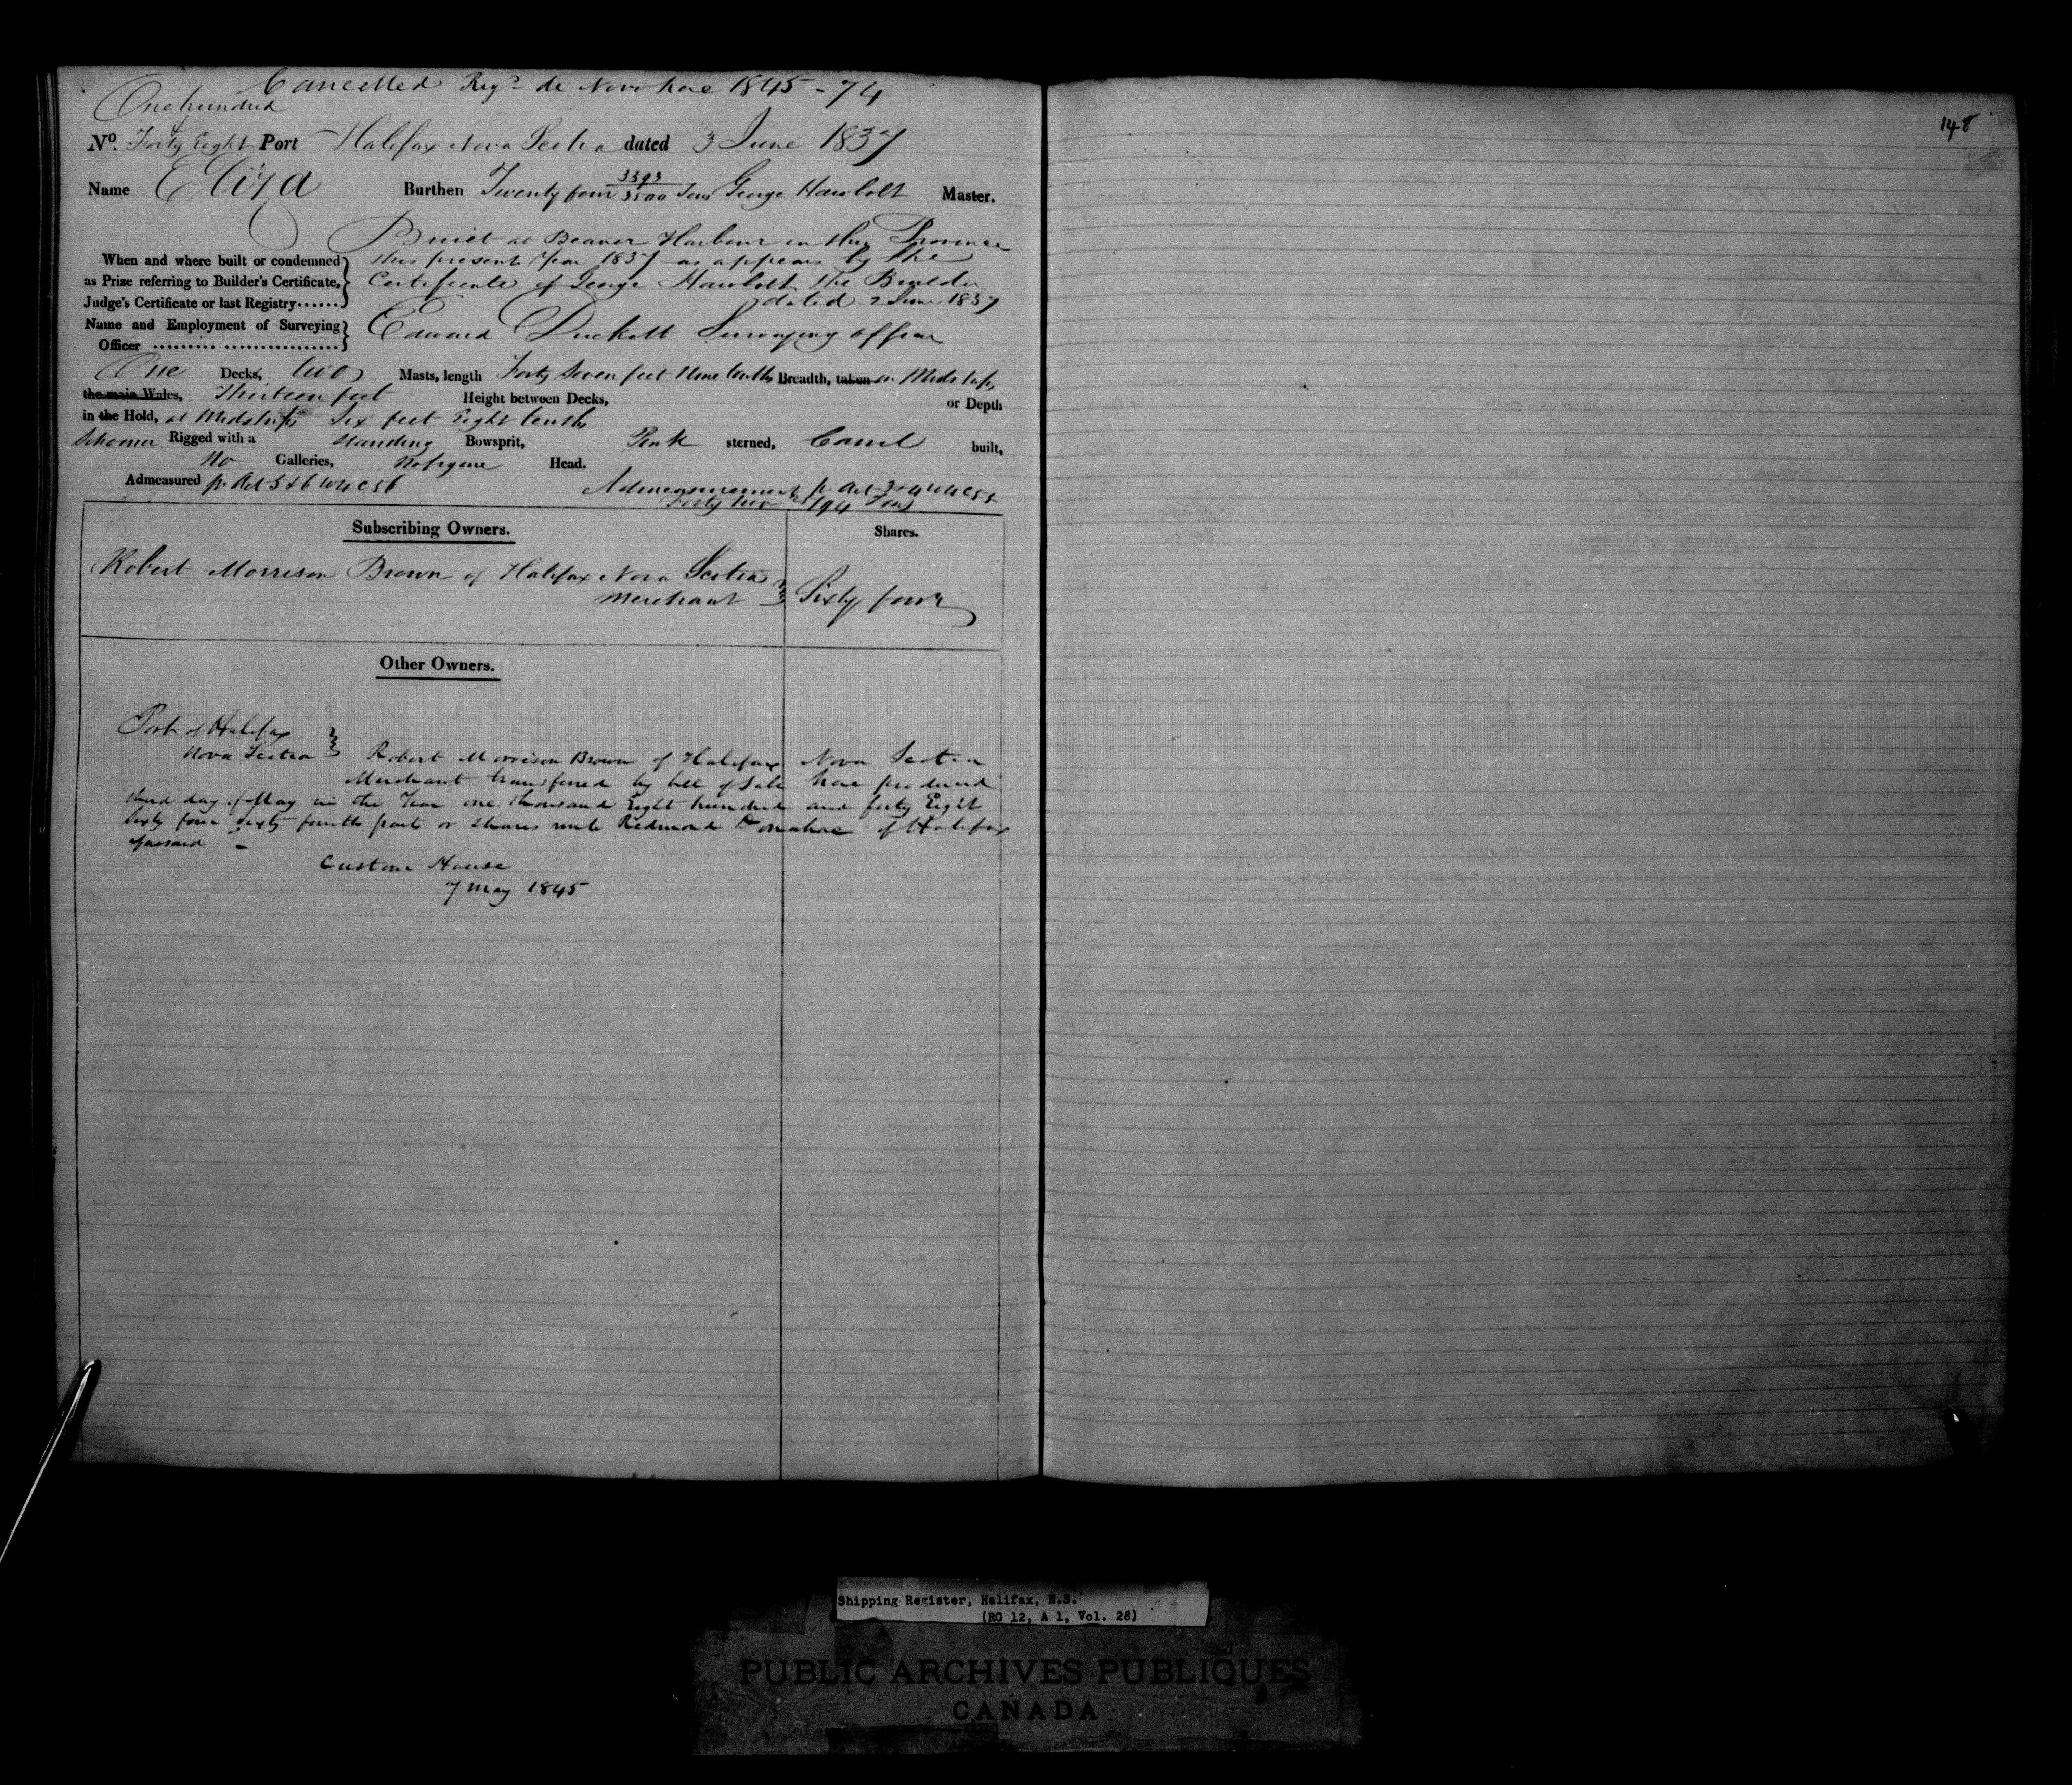 Cancelled Regd de Novo here 1845 - 74
One hundred
&
No. Forty Eight Port Halifax Nova Scotia dated 3 June 1837
148
Name Eliza Burthen Twenty four 3393/3500 Tons George Hawbolt Master.
Built at Beaver Harbour in this Province
When and where built or condemned this present Year 1837 as appears by the
as Prize referring to Builder's Certificate, Certificate of George Hawbolt the Builder
Judge's Certificate or last Registry...... dated 2 June 1837
Name and Employment of Surveying Edward Duckett Surveying officer
Officer ......... ................
One Decks, two Masts, length Forty Seven feet Nine tenths Breadth, taken in Midships
the main Wales, Thirteen feet Height between Decks, or Depth
in the Hold, at Midships Six feet Eight tenths
Schooner Rigged with a standing Bowsprit, Pink sterned, Carvel built,
No Galleries, No figure Head.
Admeasured pr Act 5 & 6 W4 C 56 Admeasurement pr Act 3 & 4 W4 C 55
Forty two /94 Tons
Subscribing Owners. Shares.
Robert Morrison Brown of Halifax Nova Scotia
Merchant Sixty four
Other Owners.
Port of Halifax
Nova Scotia Robert Morrison Brown of Halifax Nova Scotia
Merchant transferred by bill of Sale here produced
third day of May in the Year one thousand Eight hundred and forty Eight
Sixty four Sixty fourth parts or shares unto Redmond Donahoe of Halifax
Custom House
7 May 1845
Shipping Register, Halifax, N.S.
(RG 12, A 1, Vol. 28)
PUBLIC ARCHIVES PUBLIQUES
CANADA